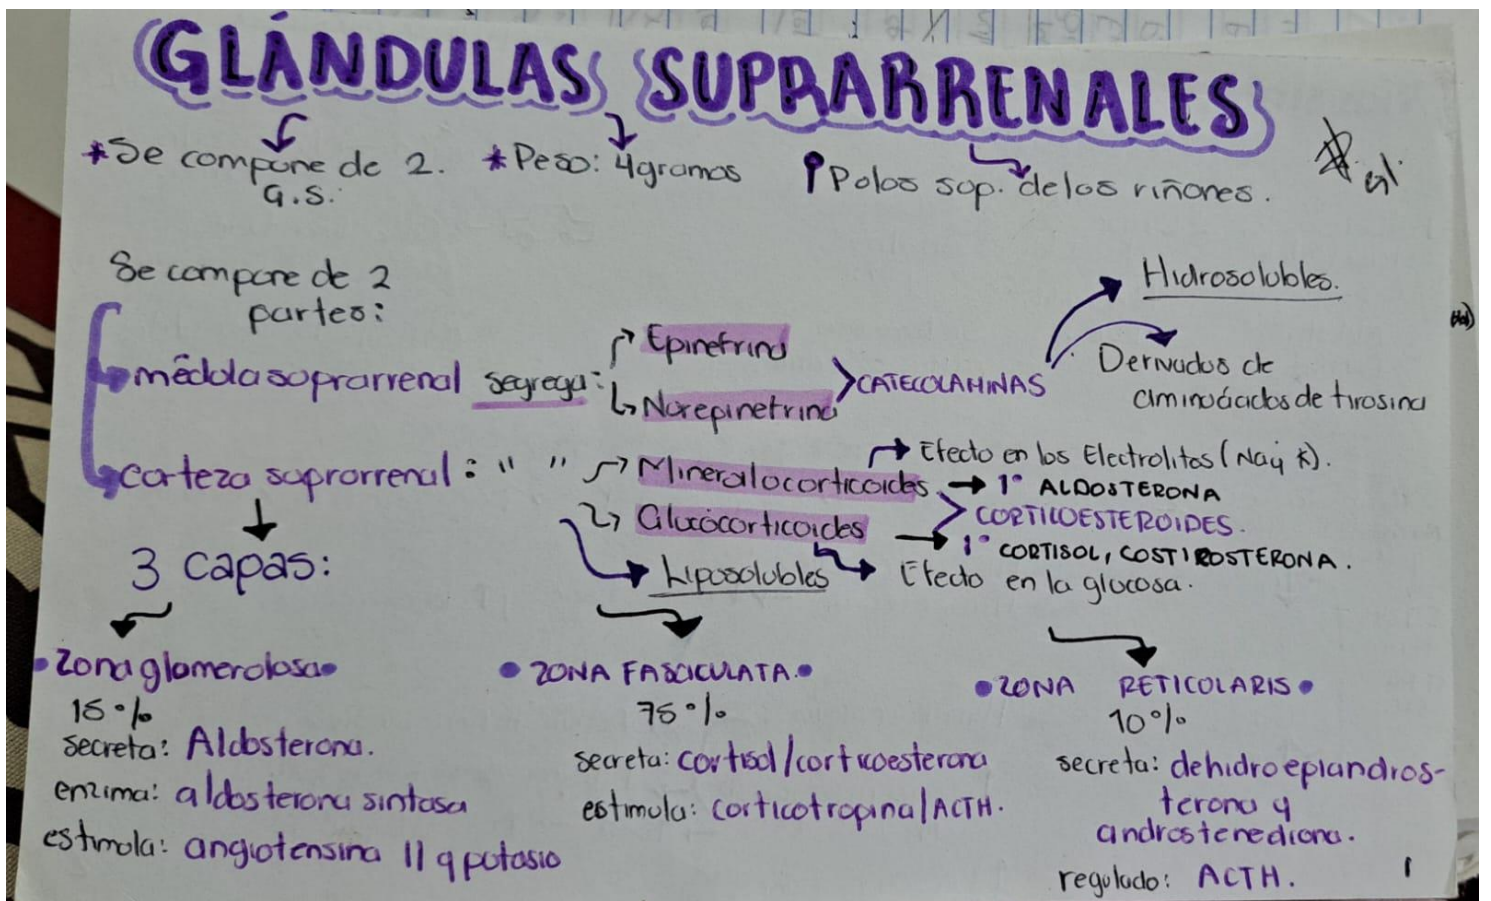 GLÁNDULAS SUPRARRENALES
*Se compone de 2. G.S.
*Peso: 4gramos
Polos sup. de los riñones.
Se compone de 2
partes:
médula suprarrenal segrega:
Epinefrina
Norepinefrina
CATECOLAMINAS
Hidrosolubles.
Derivados de
aminoácidos de tirosina
corteza suprarrenal: " "
Mineralocorticoides
Efecto en los Electrolitos (Na y K).
1° ALDOSTERONA
Glucocorticoides
CORTICOESTEROIDES.
1° CORTISOL, COSTIROSTERONA.
Liposolubles
Efecto en la glucosa.
3 capas:
• Zona glomerolosa •
15%
secreta: Aldosterona.
enzima: aldosterona sintasa
estimula: angiotensina II y potasio
• ZONA FASCICULATA. •
75%
secreta: cortisol/corticoesterona
estimula: corticotropina/ACTH.
• ZONA RETICOLARIS •
10%
secreta: dehidroepiandros-
terona y
androstenediona.
regulado: ACTH.
1